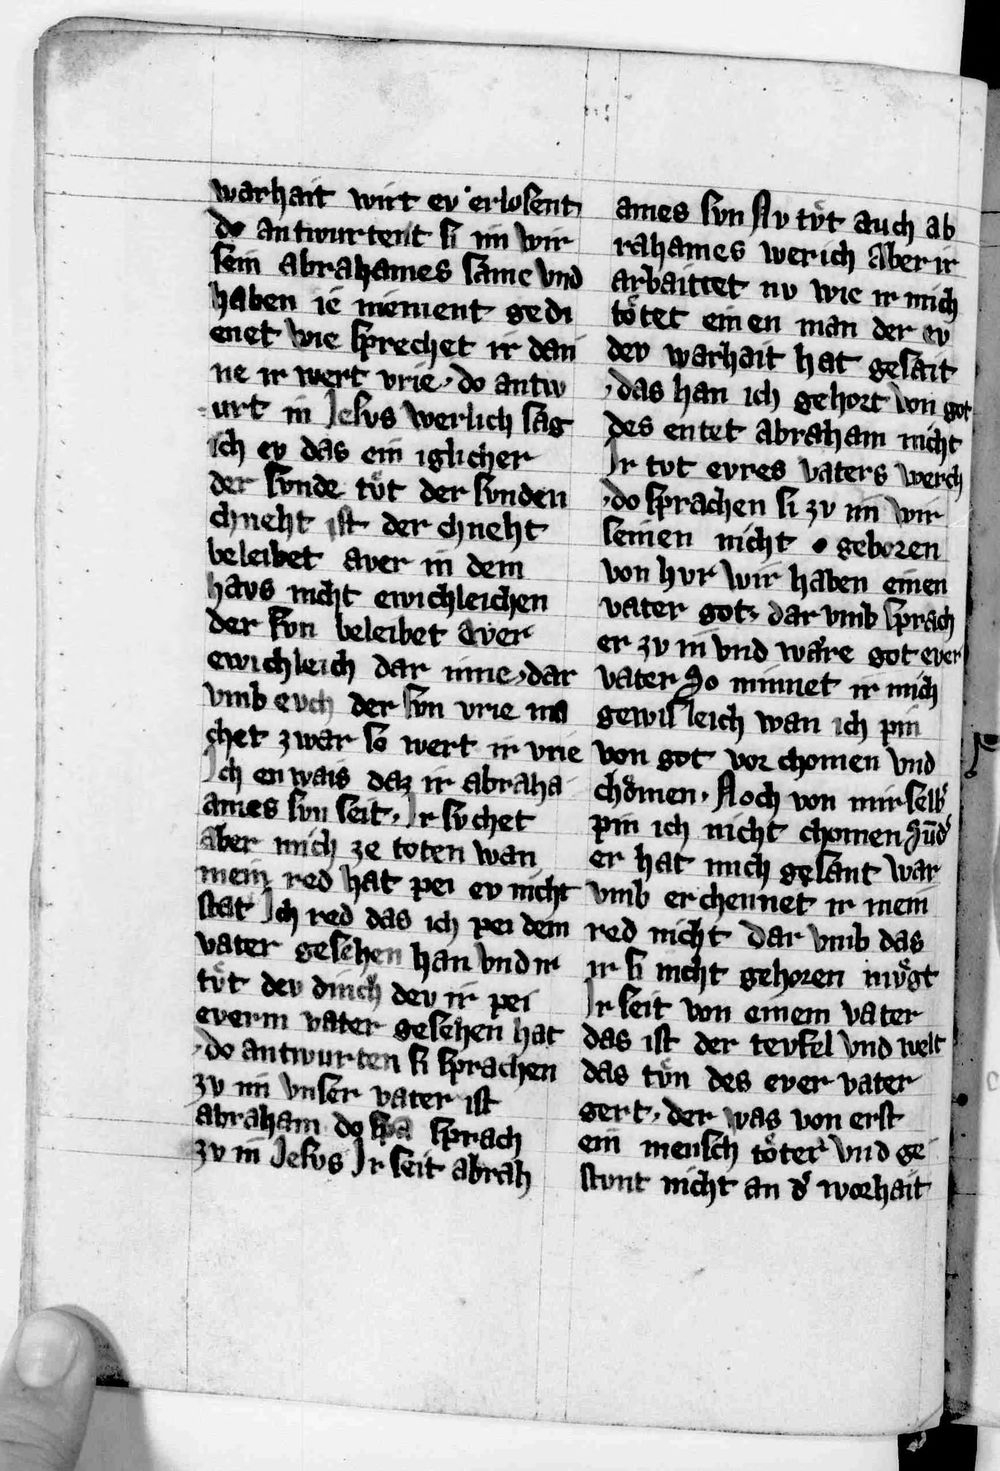 warhait wirt ev erlosent
do antwurtent si im wir
sein abrahames same vnd
haben ie niement gedi
enet wie sprechet ir dan
ne ir wert vrie · do antw
urt in Jesvs werlich sag
ich ev das ein iglicher
der svnde tvͦt der svnden
chneht ist der chneht
beleibet aver in dem
havs nicht ewichleichen
der svn beleibet aver
ewichleich dar inne · dar
vmb evch der svn vrie ma
chet zwar so wert ir vrie
Ich en wais daz ir abraha
ames svn seit · Ir svchet
aber mich ze toten wan
mein red hat pei ev nicht
stat Ich red das ich pei dem
vater gesehen han vnd ir
tvͦt dev dinch dev ir pei
everm vater gesehen hat
· do antwurten si sprachen
zv im vnser vater ist
abraham do sprach
zv in Jesvs Ir seit abrah
ames svn Nv tvͦt auch ab
rahames werich Aber ir
arbaittet nv wie ir mich
toͤtet einen man der ev
dev warhait hat gesait
· das han ich gehort von got
des entet abraham nicht
Ir tvt evres vaters werch
· do sprachen si zv im wir
seinen nicht geboren
von hvr wir haben einen
vater got · dar vmb sprach
er zv in vnd waͤre got ever
vater So minnet ir mich
gewisleich wan ich pin
von got vor chomen vnd
choͤmen · Noch von mir selbʼ
pin ich nicht chomen Svndʼ
er hat mich gesant war
vmb erchennet ir mein
red nicht dar vmb das
ir si nicht gehoren mvͤgt
Ir seit von einem vater
das ist der tevfel vnd welt
das tvͦn des ever vater
gert · der was von erst
ein mensch toͤter vnd ge
stvnt nicht an dʼ worhait